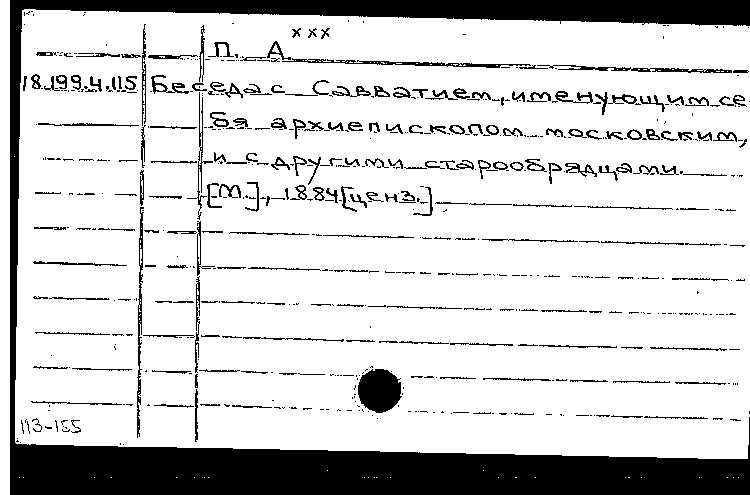 xxx
П. А.
18.199.4.115 Беседа с Савватием, именующим се
бя архиепископом московским,
и с другими старообрядцами.
[М.], 1884 [ценз.]
113-155